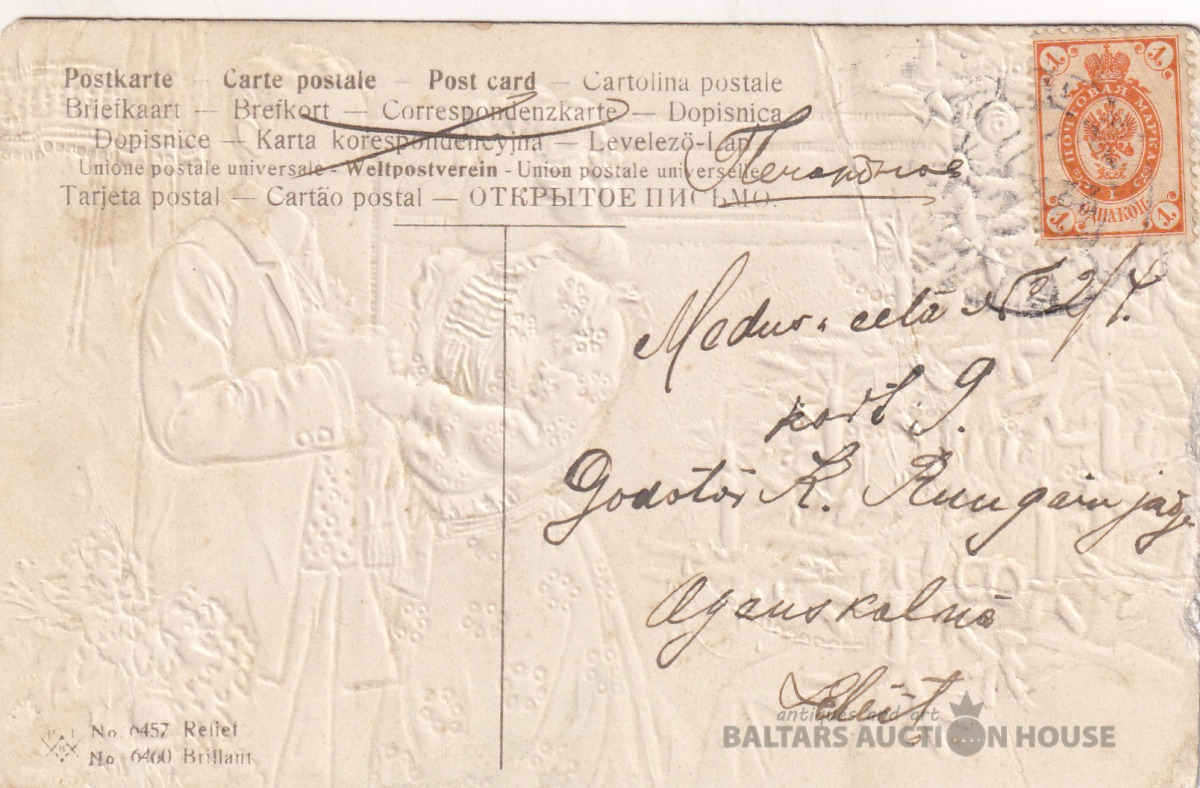 Postkarte — Carte postale — Post card — Cartolina postale
Briefkaart — Brefkort — Correspondenzkarte — Dopisnica
Dopisnice — Karta korespondencyjna — Levelezö-Lap
Unione postale universale - Weltpostverein - Union postale universelle
Tarjeta postal — Cartão postal — ОТКРЫТОЕ ПИСЬМО.
Печатное
1 1
ПОЧТОВАЯ МАРКА
1
ОДНА КОП.
1 1
Medus-eelâ № 2/4.
kort. 9.
Godotâs K. Rungain jaŋ.
Agenskalnâ
No 6457 Relief
No 6460 Brillant
antiques and art
BALTARS AUCTION HOUSE